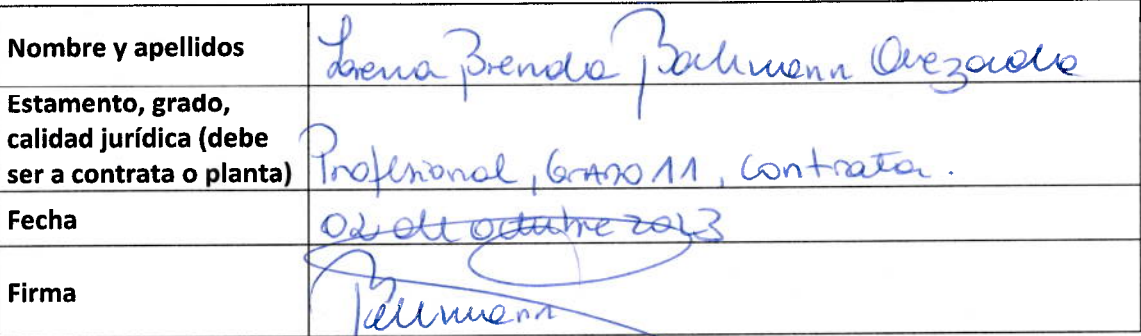 Nombre y apellidos
Lorena Brenda Bahmann Quezada
Estamento, grado,
calidad jurídica (debe
ser a contrata o planta)
Profesional, GRADO 11, contrata.
Fecha
02 de octubre 2023
Firma